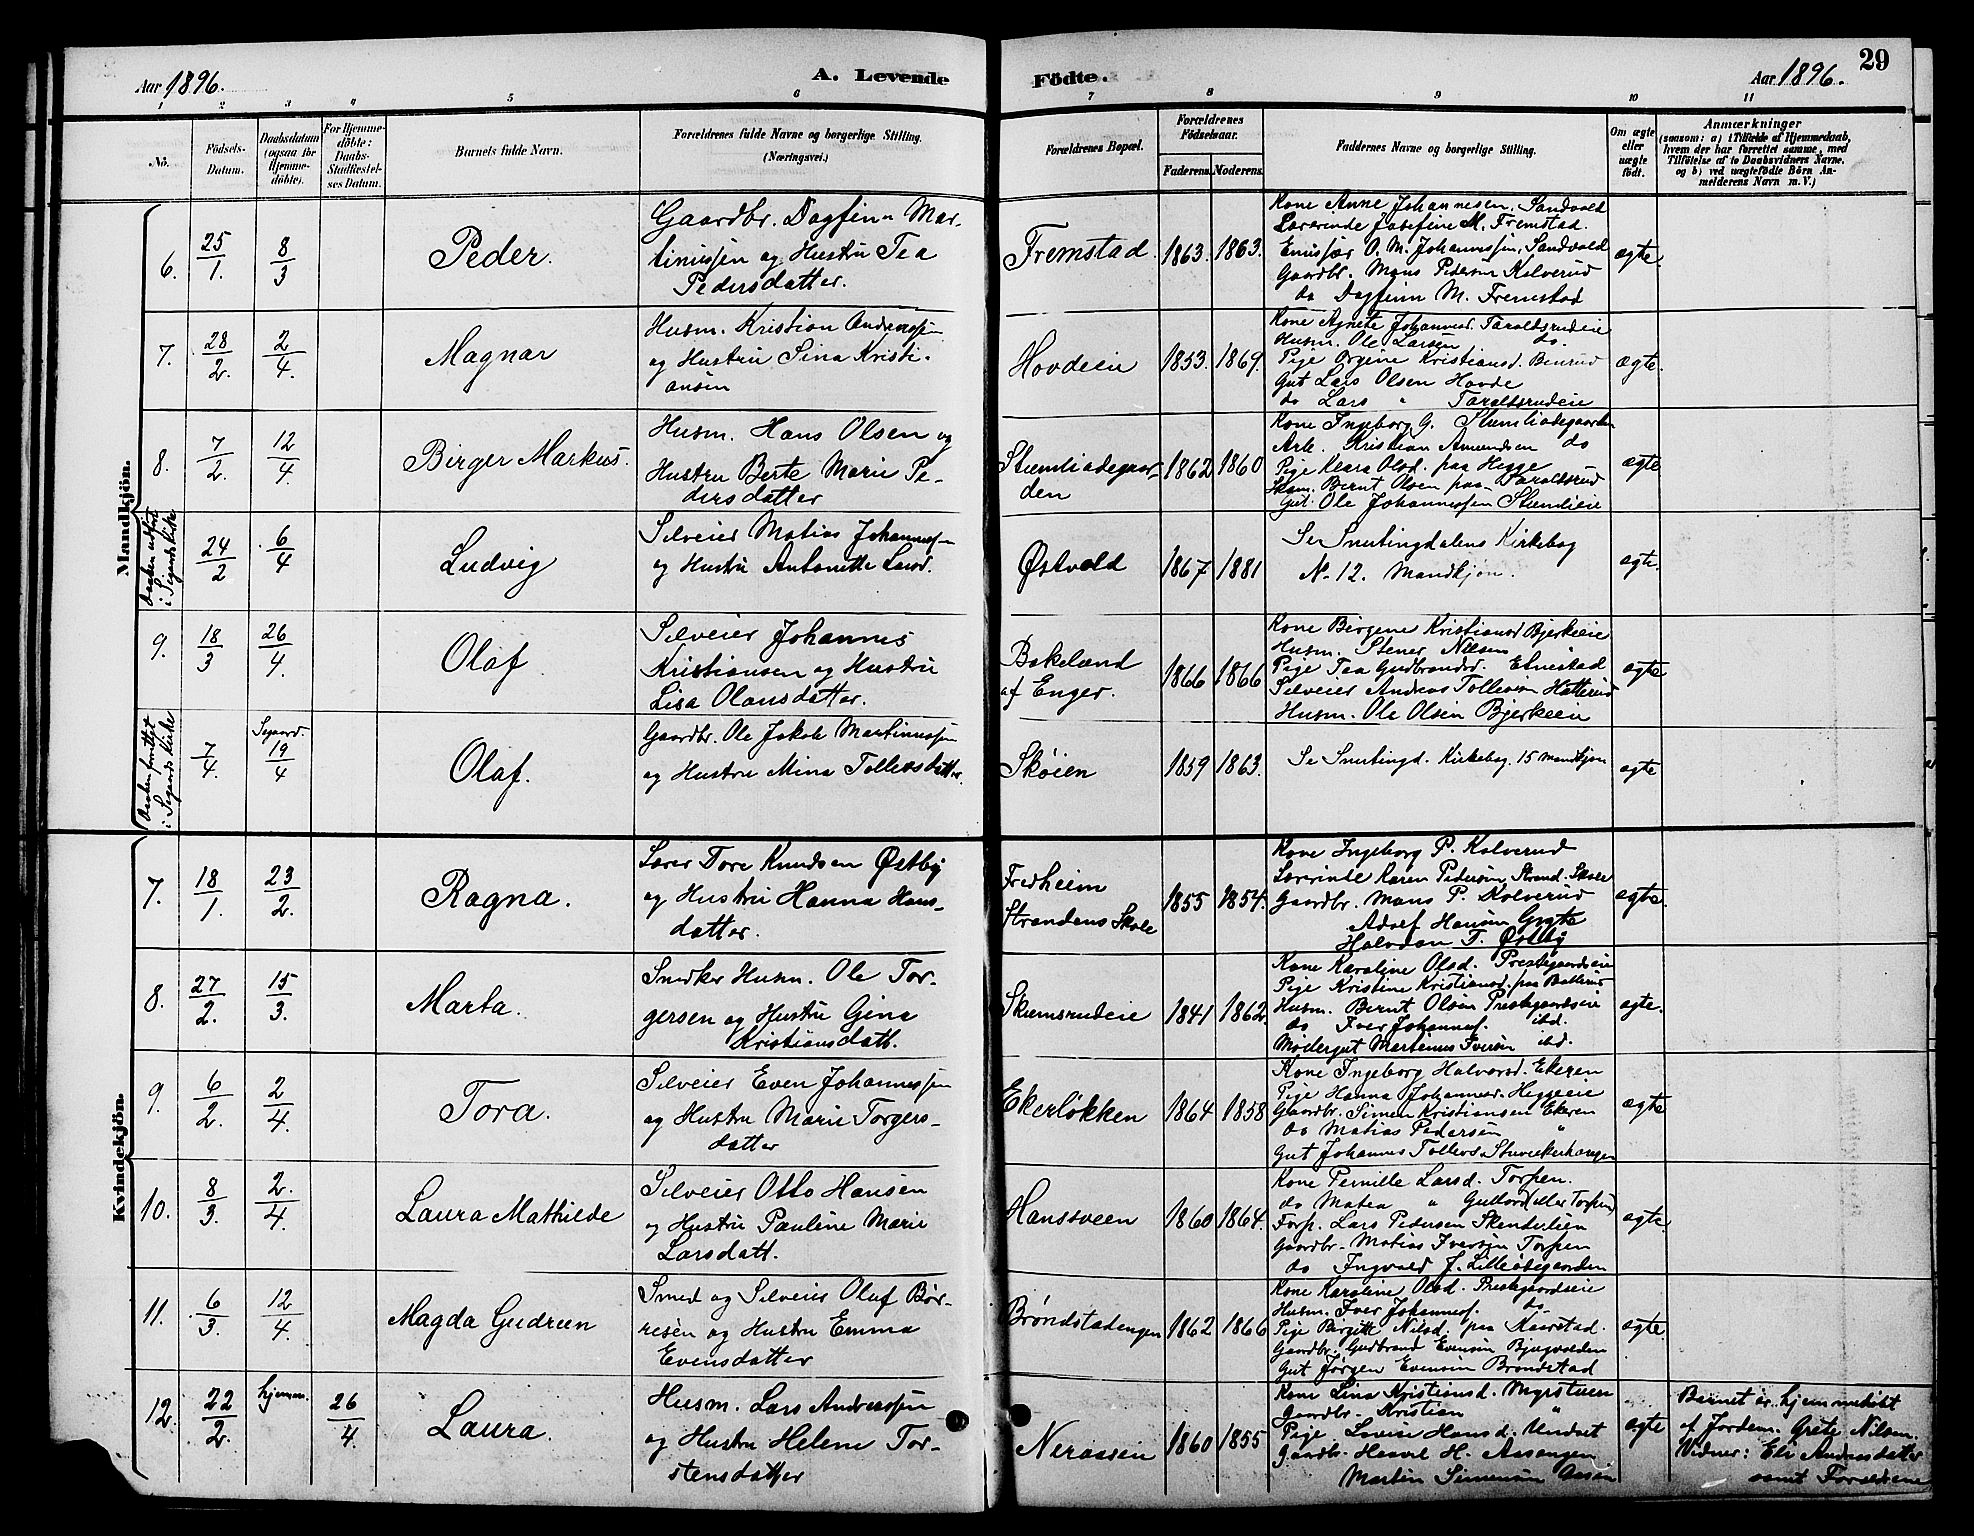 Aar 1896.
A. Levende
Födte.
Aar 1896.
29
1 2 3 4 5 6 7 8 9 10 11
No.
Födsels-Datum.
Daabsdatum (ogsaa for Hjemme-döbte).
For Hjemme-döbte: Daabs-Stadfæstel-ses Datum.
Barnets fulde Navn.
Forældrenes fulde Navne og borgerlige Stilling. (Næringsvei.)
Forældrenes Bopæl.
Forældrenes Födselsaar.
Faderens. Moderens.
Faddernes Navne og borgerlige Stilling.
Om ægte eller uægte födt.
Anmærkninger
(saasom: a) i Tilfælde af Hjemmedaab, hvem der har forrettet samme, med Tilföielse af to Daabsvidners Navne, og b) ved uægtefödte Börn Anmelderens Navn m. V.)
Mandkjön.
6. 25/1 8/3 Peder.
Gaardbr. Dagfinn Mar-
tinussen og Hustru Tea
Pedersdatter.
Fremstad. 1863. 1863.
Kone Anne Johannesen. Sandvold
Lærerinde Josefine M. Fremstad.
Emissær O. M. Johannessen, Sandvold
Gaardbr. Mons Pedersen Kolverud
do Dagfinn M. Fremstad
ægte.
7. 28/2. 2/4. Magnar
Husm. Kristian Andreassen
og Hustru Sina Kristi-
ansen
Hovdeie 1853. 1869.
Kone Agnete Johannesd. Taraldsrudeie
Husm. Ole Larsen do.
Pige Orgine Kristiansd. Benrud
Gut Lars Olsen Hovde
do Lars " Taraldsrudeie
ægte.
8. 7/2. 12/4 Birger Markus.
Husm. Hans Olsen og
Hustru Berte Marie Pe-
dersdatter
Steenliødegaar-
den
1862 1860
Kone Ingeborg G. Steenliødegaarden
Arb. Kristian Amundsen do
Pige Klara Olsd. paa Hegge
Skom. Bernt Olsen paa Taraldsrud
Gut. Ole Johannessen Steenlieie
ægte
Daaben udført
i Segards kirke
24/2 6/4 Ludvig
Selveier Matias Johannessen
og Hustru Antonette Larsd.
Østvold 1867 1881
Se Snertingdalens Kirkebog
N. 12. Mandkjøn.
ægte.
9. 18/3 26/4. Olaf
Selveier Johannes
Kristiansen og Hustru
Lisa Olausdatter.
Bakeland
af Enger.
1866 1866
Kone Birgene Kristiansd Bjerkeeie
Husm. Stener Nilsen "
Pige Tea Gudbrandsd. Etnestad
Selveier Andreas Tollevsen Hatterud
Husm. Ole Olsen Bjerkeeie
ægte
Daaben forrettet
i Segards Kirke
7/4. Segaard. 19/4 Olaf.
Gaardbr. Ole Jakob Martinussen
og Hustru Mina Tollevsdatter.
Skøien 1859 1863.
Se Snertingd. Kirkebog. 15 mandkjøn
ægte
Kvindekjön.
7. 18/1. 23/2. Ragna.
Lærer Tore Knudsen Østby
og Hustru Hanna Hans-
datter.
Fredheim
Strandens Skole
1855 1854.
Kone Ingeborg P. Kolverud
Lærerinde Karen Pedersen Strand. Skole
Gaardbr. Mons P. Kolverud
Adolf Hansen Gryte
Halvdan T. Østby
ægte.
8. 27/2. 15/3. Marta.
Snedker Husm. Ole Tor-
gersen og Hustru Gina
Kristiansdatt.
Skumsrudeie 1841 1862.
Kone Karoline Olsd. Prestegaardseie
Pige Kristine Kristiansd. paa Ballerud
Husm. Bernt Olsen Prestegaardseie
do Iver Johannes. ibd.
Møllergut Martinus Iversen ibd.
ægte.
9. 6/2. 2/4. Tora.
Selveier Even Johannessen
og Hustru Marie Torgers-
datter
Ekerløkken 1864 1858
Kone Ingeborg Halvorsd. Ekeren
Pige Hanna Johannesd. Heggeeie
Gaardbr. Simen Kristiansen Ekeren
do Matias Pedersen "
Gut Johannes Tollevs
ægte
10. 8/3. 2./4. Laura Mathilde
Selveier Otto Hansen
og Hustru Pauline Marie
Larsdatt.
Hansveen 1860 1864.
Kone Pernille Larsd. Torpen.
do Matea " Gullord (eller Torpen)
Forp. Lars Pedersen Skenderlien
Gaardbr. Matias Iversen Torpen
do Ingvald J. Lilleødegaarden
ægte
11. 6/3. 12/4. Magda Gudrun
Smed og Selveier Olaf Bør-
resen og Hustru Emma
Evensdatter
Brøndstadengen 1862 1866
Kone Karoline Olsd. Prestegaardseie
Husm. Iver Johannes. do.
Pige Birgitte Nilsd. paa Kaarstad.
Gaardbr. Gudbrand Evensen Bjugvolden
Gut Jørgen Evensen Brøndstad
ægte
12. 22/2. hjemme. 26/4. Laura.
Husm. Lars Andreassen
og Hustru Helene Tor-
stensdatter
Neraasen 1860 1855
Kone Lina Kristiansd. Myrstuen
Gaardbr. Kristian "
Pige Lovise Hansd. Undset
Gaardbr. Haavel H. Aasangen
Martin Simensen Aasen
ægte
Barnet er hjemmedøbt
af Jordem. Grete Nilsen.
Vidner: Eli Andreasdatter
samt Forældrene